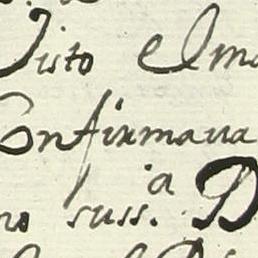 Visto elma
Confirmava
no suss.ª D